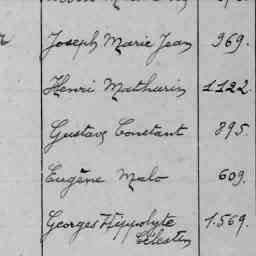 Joseph Marie Jean 969.
Henri Mathurin 1.122.
Gustave Constant 895.
Eugène Malo 609.
Georges Hippolyte 1.569.
Célestin